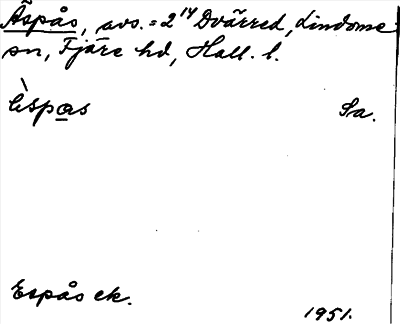 Äspås, avs. = 2¹⁴ Dvärred, Lindome
sn, Fjäre hd, Hall. l.
èspas Sa.
Espås ek.
1951.